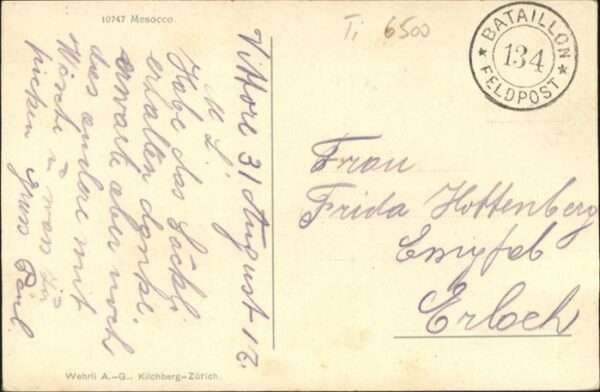 10747 Mesocco.
Ti 6500
BATAILLON
134
FELDPOST
Vittore 31 August 17.
M. L.
Habe das Säckli
erhalten danke.
erwarte aber noch
das andere mit
Wäsche u was zu
picken Gruss Paul
Frau
Frida Hottenberg
Erlach
Wehrli A.-G., Kilchberg-Zürich.